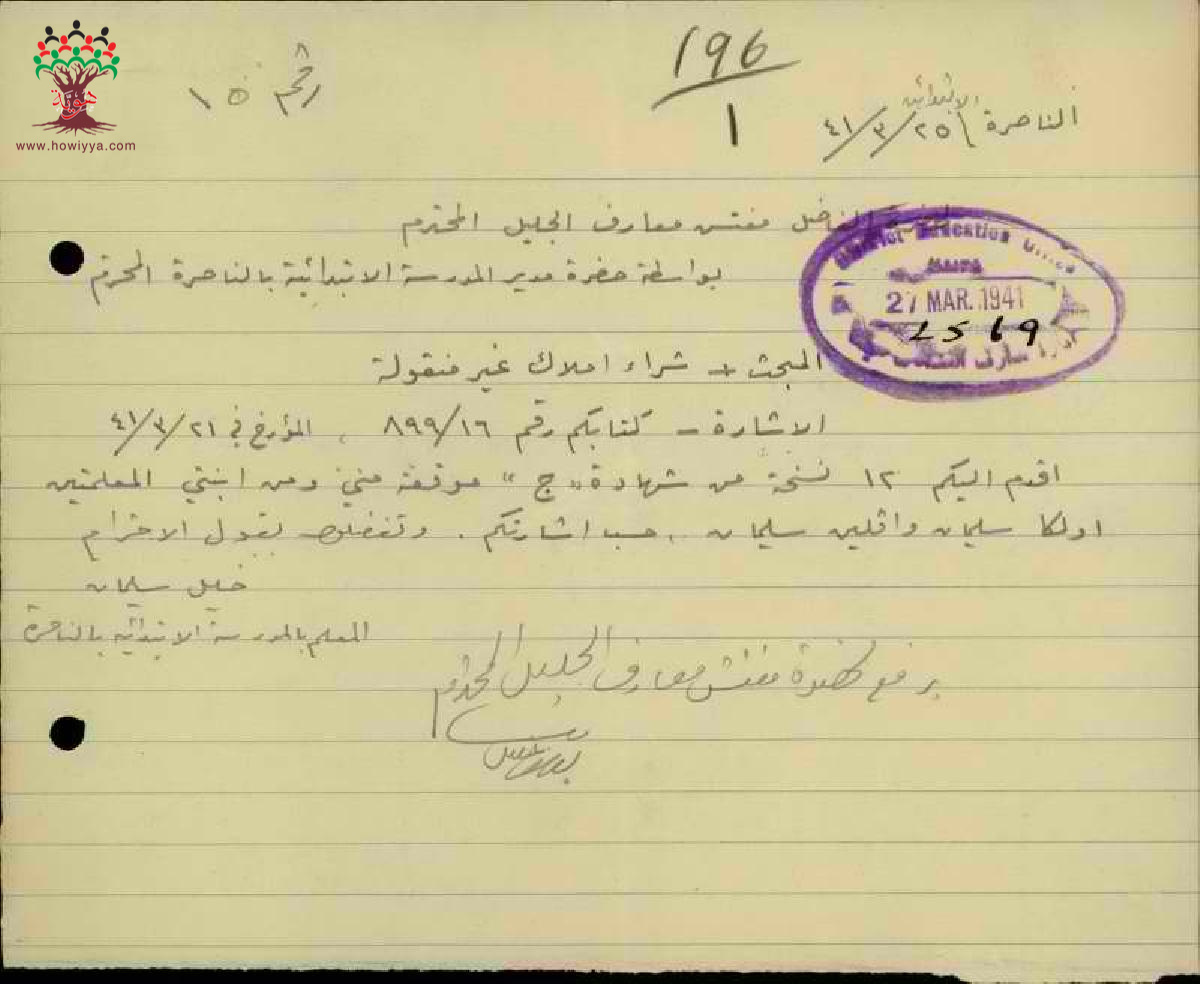 رقم ١٥
196
1
الابتدائية
الناصرة ٤١/٣/٢٥
www.howiyya.com
الفاضل مفتش معارف الجليل المحترم
بواسطة حضرة مدير المدرسة الابتدائية بالناصرة المحترم
District Education Office
HAIFA
27 MAR. 1941
2569
المبحث - شراء املاك غير منقولة
الاشارة - كتابكم رقم ٨٩٩/١٦ ، المؤرخ في ٤١/٣/٢١
اقدم اليكم ١٢ نسخة من شهادة "ج" موقعة مني ومن ابنتي المعلمتين
اولكا سليمان واڤلين سليمان ، حسب اشارتكم . وتفضلوا بقبول الاحترام
خليل سليمان
المعلم بالمدرسة الابتدائية بالناصرة
يرفع لحضرة مفتش معارف الجليل المحترم